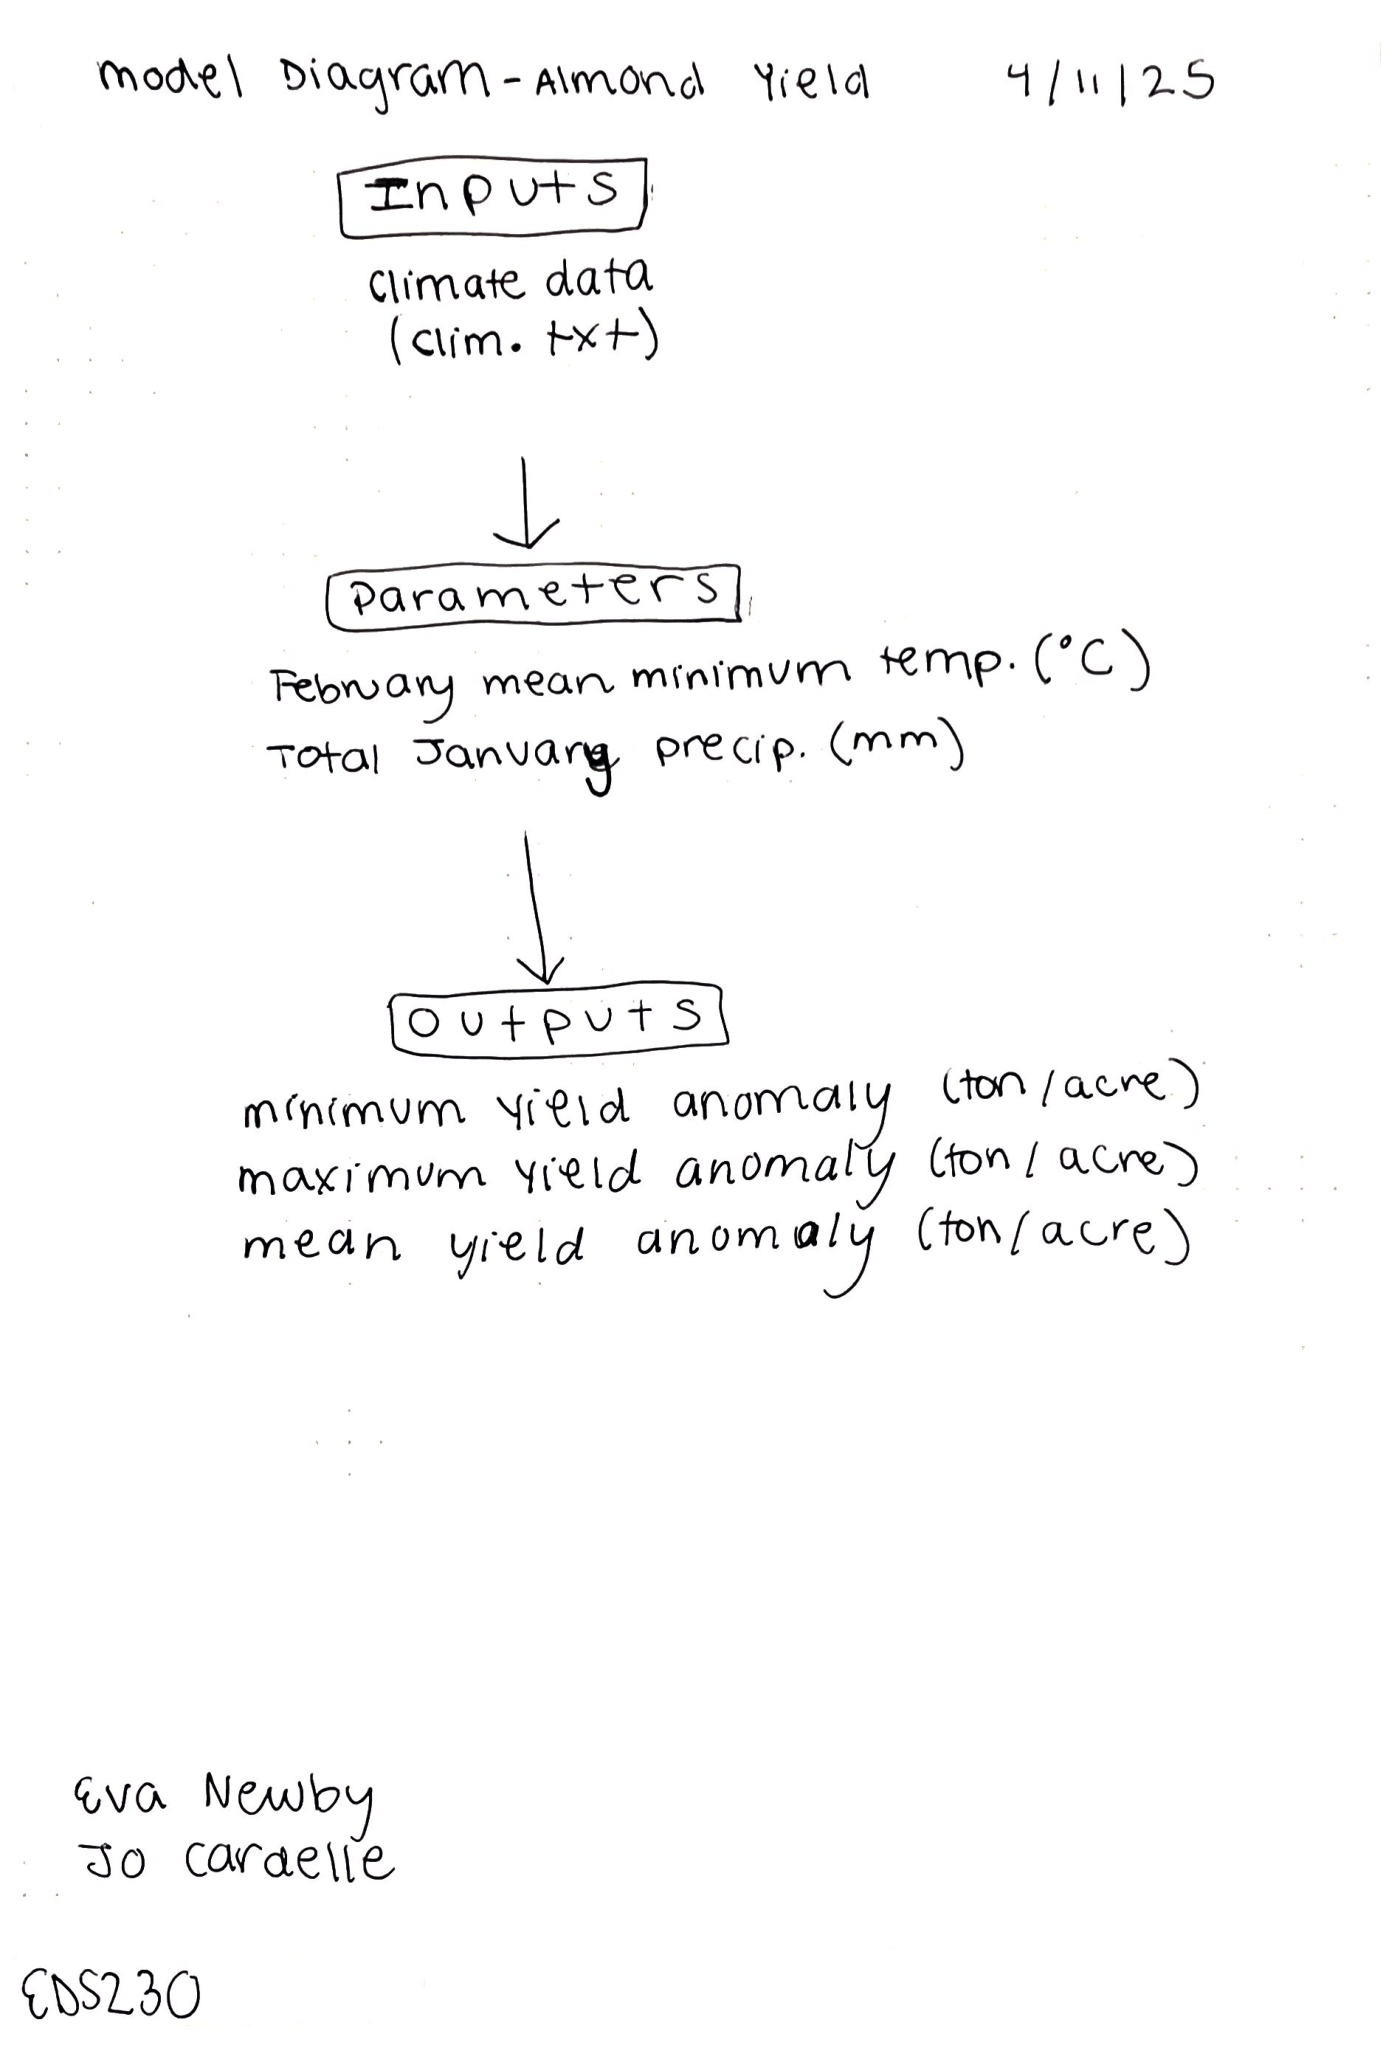 Model Diagram - Almond Yield 4/11/25
Inputs
climate data
(clim.txt)
Parameters
February mean minimum temp. (°C)
Total January precip. (mm)
Outputs
minimum yield anomaly (ton/acre)
maximum yield anomaly (ton/acre)
mean yield anomaly (ton/acre)
Eva Newby
Jo Cardelle
EDS230